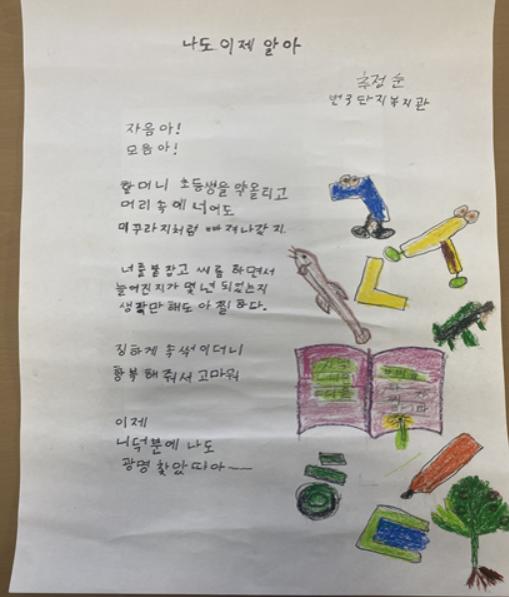 나도 이제 알아
추정순
번3단지복지관
자음아!
모음아!
할머니 초등생을 약올리고
머리 속에 너어도
미꾸라지처럼 빠져나갔지.
너를 붙잡고 씨름 하면서
늘어진지가 몇년 되었는지
생각만 해도 아찔하다.
징하게 속썩이더니
항복해 줘서 고마워
이제
니덕분에 나도
광명 찾았따아~~